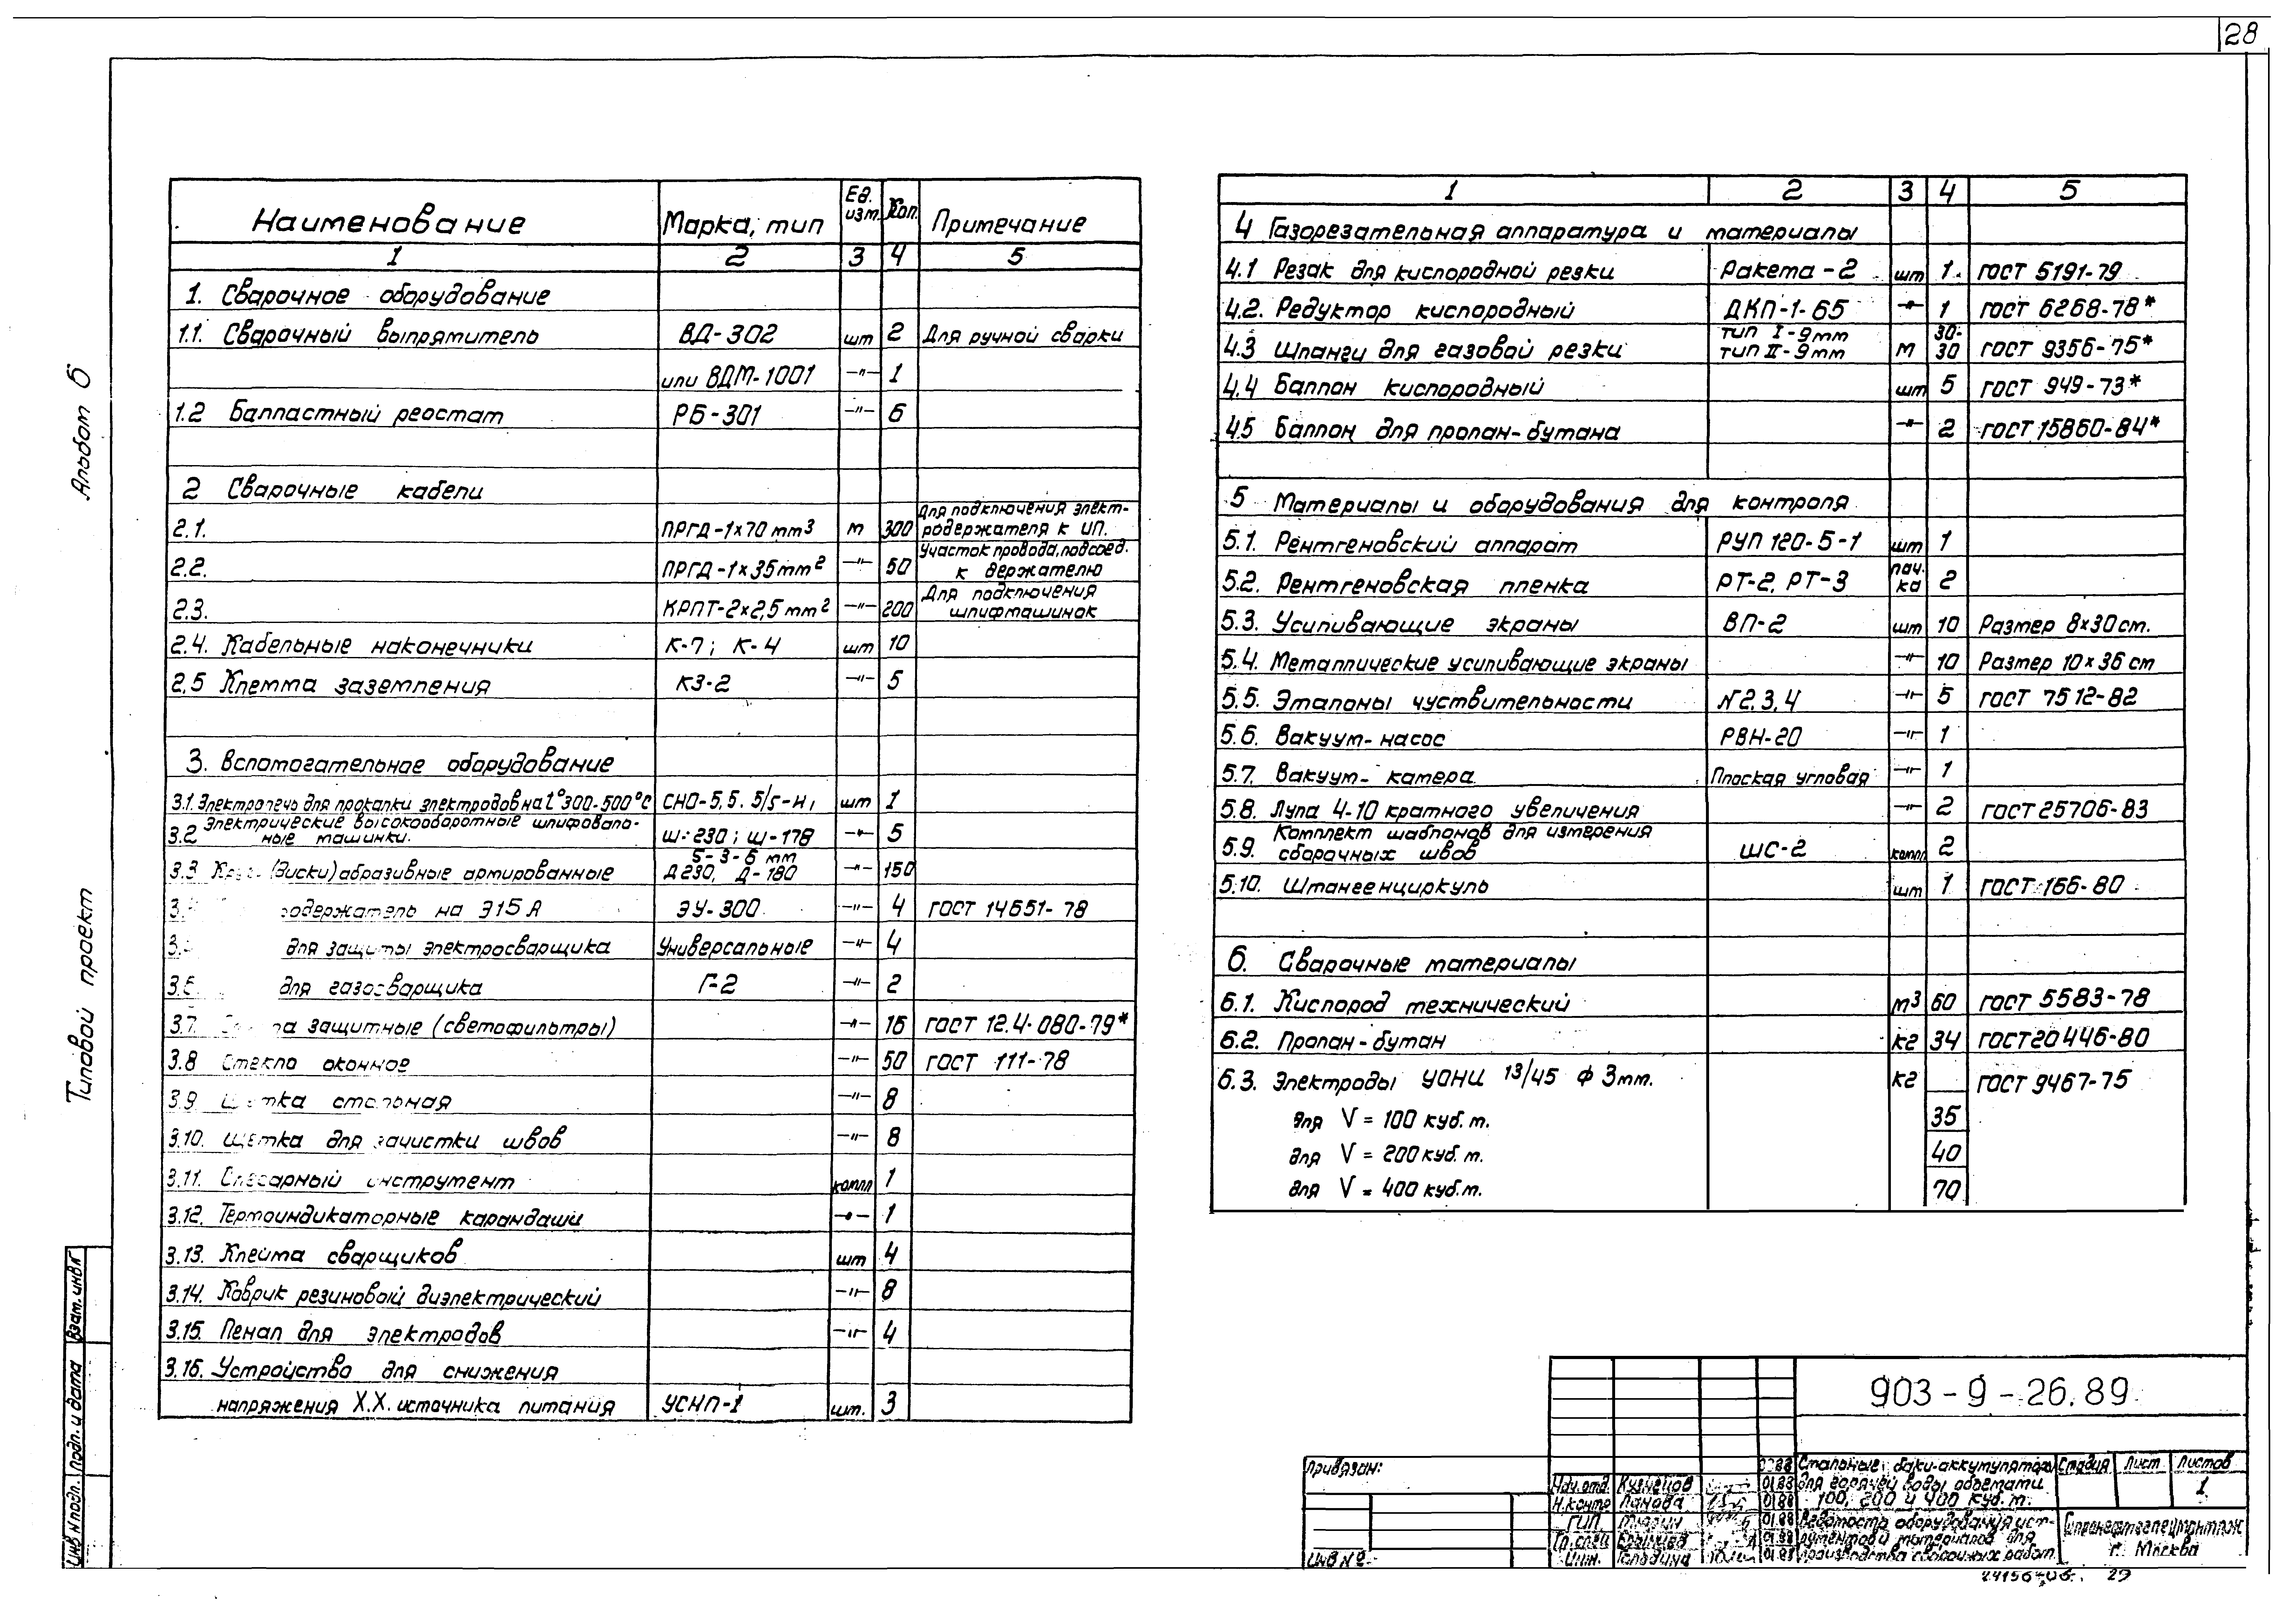 28
Альбом 6
Типовой проект
Наименование Марка, тип Ед. изм. Кол. Примечание
1 2 3 4 5
1. Сварочное оборудование
1.1. Сварочный выпрямитель ВД-302 шт 2 Для ручной сварки
или ВДМ-1001 —"— 1
1.2 Балластный реостат РБ-301 —"— 6
2 Сварочные кабели
2.1. ПРГД-1×70 мм3 м 300 Для подключения элект-родержателя к ИП.
2.2. ПРГД-1×35 мм2 —"— 50 Участок провода, подсоед. к держателю
2.3. КРПТ-2×2,5 мм2 —"— 200 Для подключения шлифмашинок
2.4. Кабельные наконечники К-7; К-4 шт 10
2.5 Клемма заземления КЗ-2 —"— 5
3. Вспомогательное оборудование
3.1. Электропечь для прокалки электродов на t°300-500°С СНО-5,5. 5/5-И1 шт 1
3.2 Электрические высокооборотные шлифоваль-ные машинки. Ш-230; Ш-178 —"— 5
3.3 (диски) абразивные армированные 5-3-6 мм Д 230, Д-180 —"— 150
3. одержатель на 315 А ЭУ-300 —"— 4 ГОСТ 14651-78
3. для защиты электросварщика Универсальные —"— 4
3.6 для газосварщика Г-2 —"— 2
3.7. защитные (светофильтры) —"— 16 ГОСТ 12.4.080-79*
3.8 Стекло оконное —"— 50 ГОСТ 111-78
3.9 Щетка стальная —"— 8
3.10. Щетка для зачистки швов —"— 8
3.11. Слесарный инструмент компл 1
3.12. Термоиндикаторные карандаши —"— 1
3.13. Клейма сварщиков шт 4
3.14. Коврик резиновый диэлектрический —"— 8
3.15. Пенал для электродов —"— 4
3.16. Устройство для снижения
напряжения Х.Х. источника питания УСНП-1 шт. 3
1 2 3 4 5
4 Газорезательная аппаратура и материалы
4.1 Резак для кислородной резки Ракета-2 шт 1 ГОСТ 5191-79
4.2. Редуктор кислородный ДКП-1-65 —"— 1 ГОСТ 6268-78*
4.3 Шланги для газовой резки тип I-9мм тип II-9мм м 30 30 ГОСТ 9356-75*
4.4 Баллон кислородный шт 5 ГОСТ 949-73*
4.5 Баллон для пропан-бутана —"— 2 ГОСТ 15860-84*
5 Материалы и оборудования для контроля
5.1. Рентгеновский аппарат РУП 120-5-1 шт 1
5.2. Рентгеновская пленка РТ-2, РТ-3 пач. ка 2
5.3. Усиливающие экраны ВП-2 шт 10 Размер 8×30 см.
5.4. Металлические усиливающие экраны —"— 10 Размер 10×36 см
5.5. Эталоны чуствительности N2,3,4 —"— 5 ГОСТ 7512-82
5.6. Вакуум-насос РВН-20 —"— 1
5.7. Вакуум-камера Плоская угловая —"— 1
5.8. Лупа 4-10 кратного увеличения —"— 2 ГОСТ 25706-83
5.9. Комплект шаблонов для измерения сварочных швов ШС-2 компл 2
5.10. Штангенциркуль шт 1 ГОСТ 166-80
6. Сварочные материалы
6.1. Кислород технический м3 60 ГОСТ 5583-78
6.2. Пропан-бутан кг 34 ГОСТ 20446-80
6.3. Электроды УОНИ 13/45 Ф 3мм. кг ГОСТ 9467-75
для V = 100 куб.м. 35
для V = 200 куб.м. 40
для V = 400 куб.м. 70
903-9-26.89
Привязан:
Инв №
Нач.отд. Кузнецов 01.88
Н.контр Панова 01.88
ГИП 01.88
Гл.спец 01.88
Инж. Голодина 01.88
Стальные баки-аккумуляторы
для горячей воды объемами
100, 200 и 400 куб.м.
Ведомость оборудования, инс-
трументов и материалов для
производства сварочных работ.
Стадия Лист Листов
1
Гипронефтеспецмонтаж
г. Москва
24156-06 29
Взам. инв №
Подп. и дата
Инв N подл.